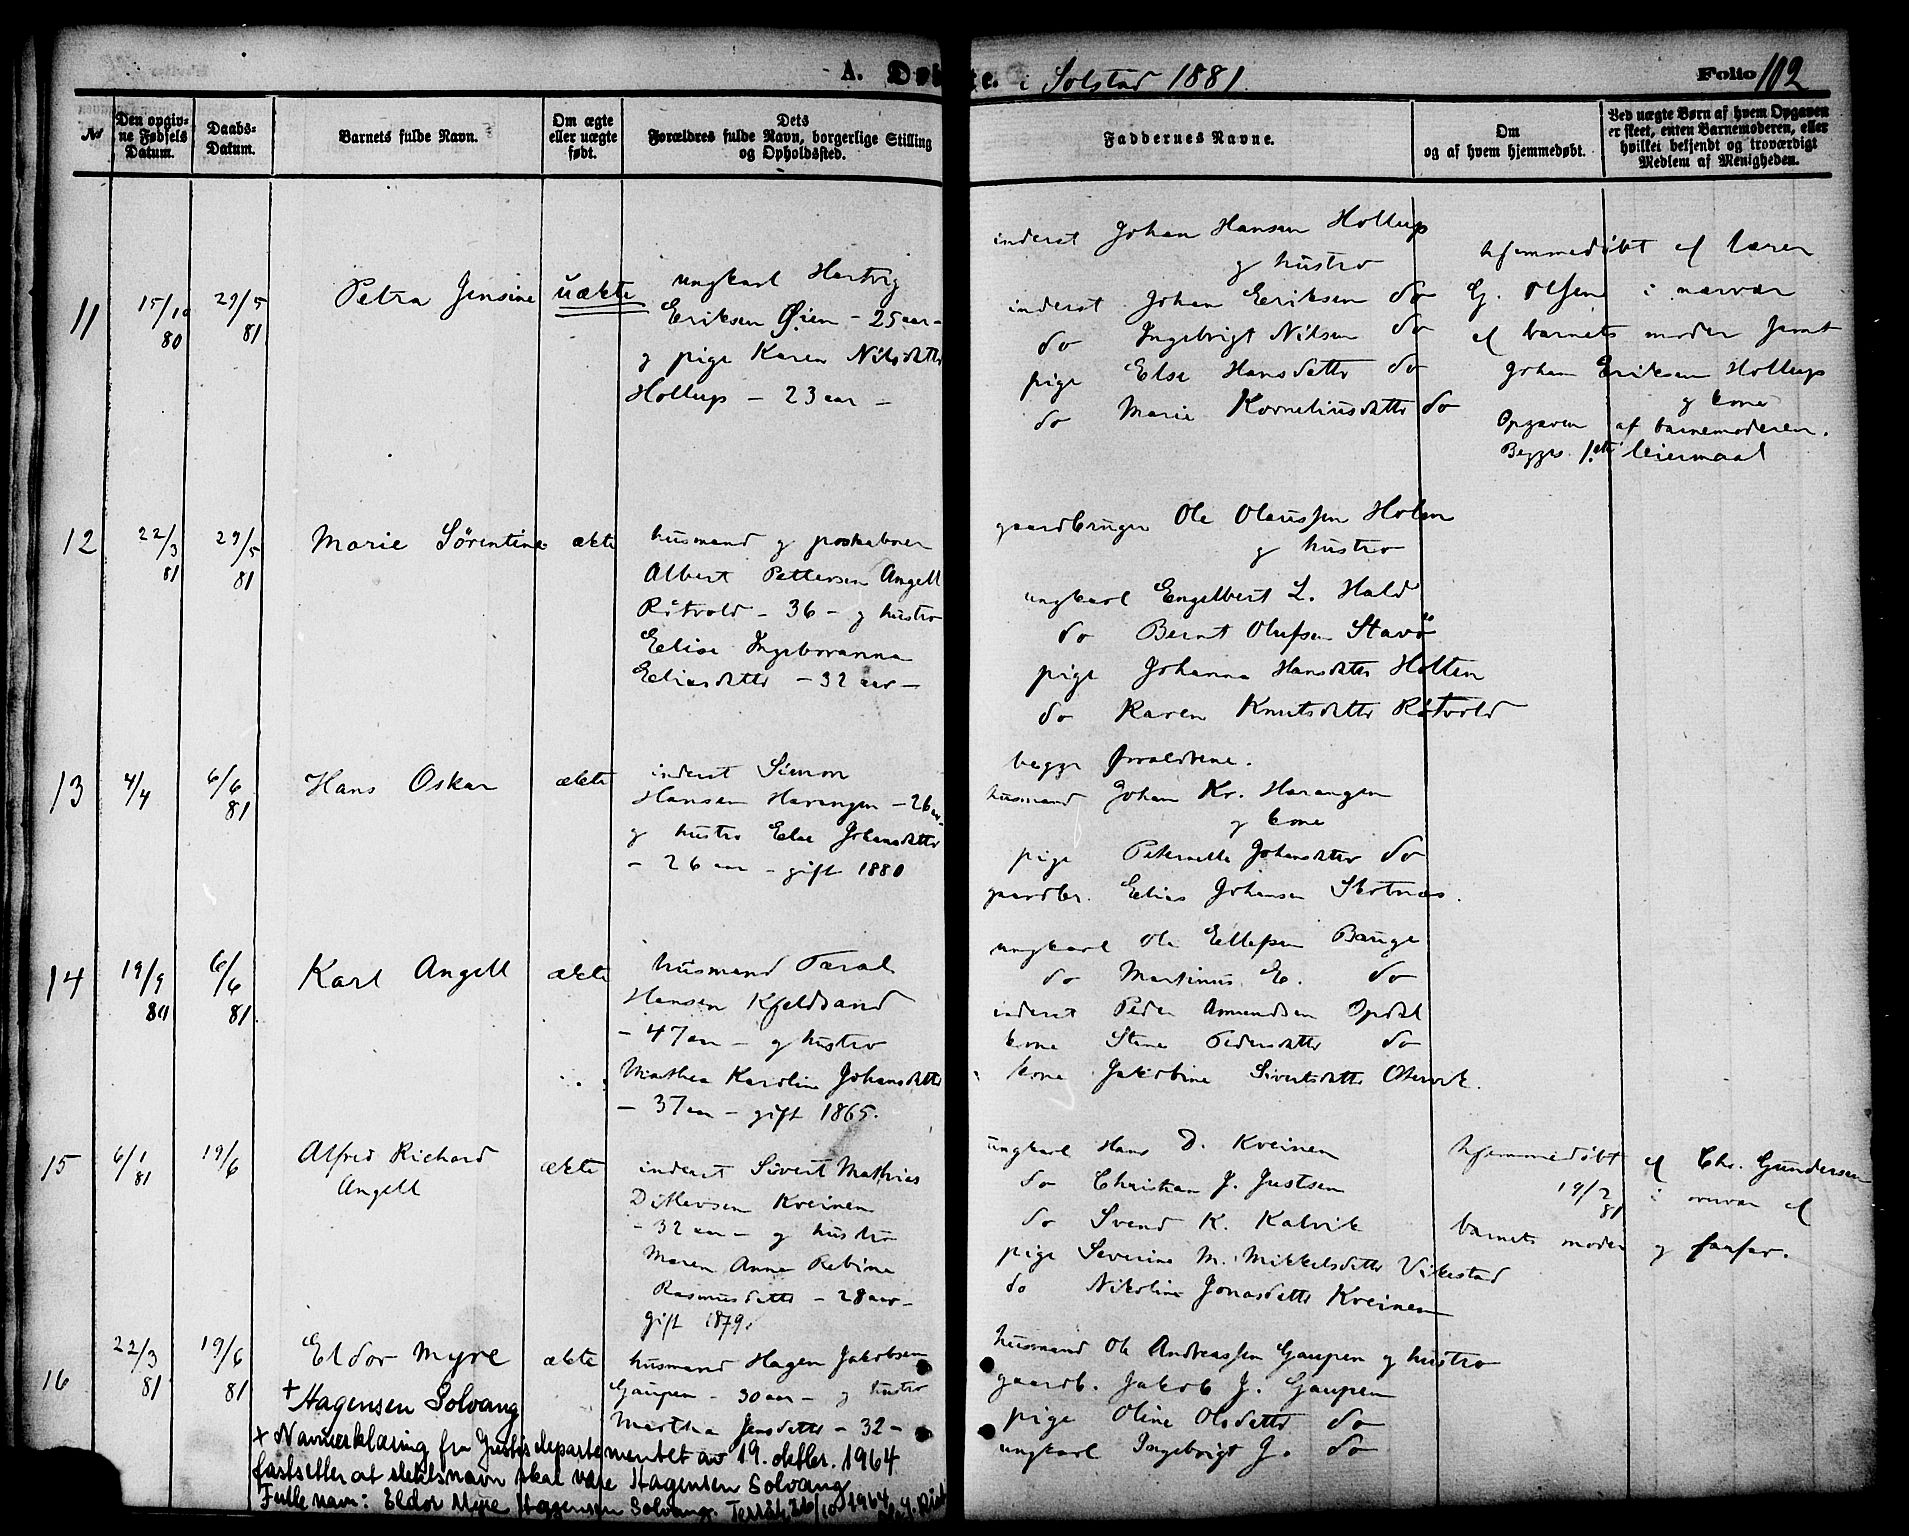 A. Døbte. i Solstad 1881.
Folio 102
No
Den opgiv-
ne Fødsels
Datum.
Daabs-
Datum.
Barnets fulde Navn.
Om ægte
eller uægte
født.
Dets
Forældres fulde Navn, borgerlige Stilling
og Opholdssted.
Faddernes Navne.
Om
og af hvem hjemmedøbt.
Ved uægte Børn af hvem Opgaven
er skeet, enten Barnemoderen, eller
hvilket bekjendt og troværdigt
Medlem af Menigheden.
11
15/10
80
29/5
81
Petra Jensine
uækte
ungkarl Hartvig
Eriksen Øien - 25 aar -
og pige Karen Nilsdatter
Hollup - 23 aar -
inderst Johan Hansen Hollup
og hustro
inderst Johan Eriksen do
do Ingebrigt Nilsen do
pige Else Hansdatter do
do Marie Korneliusdatter do
hjemmedøbt af lærer
G. Olsen i nærvær
af barnets moder samt
Johan Eriksen Hollup
og kone
Opgaven af barnemoderen.
Begges 1ste leiermaal
12
22/3
81
29/5
81
Marie Sørentine
ækte
husmand og postaabner
Albert Pettersen Angell
Råtvold - 36 - og hustro
Elise Ingeboranna
Eliasdatter - 32 aar -
gaardbruger Ole Olaussen Holen
og hustro
ungkarl Engelbert L. Hald
do Bernt Olufsen Stavø
pige Johanna Hansdatter Holten
do Karen Knutsdatter Råtvold
13
4/4
6/6
81
Hans Oskar
ækte
inderst Simon
Hansen Harangen - 26 aar -
og hustro Else Johansdatter
- 26 aar - gift 1880
begge forældrene.
husmand Johan Kr. Harangen
og kone
pige Peternelle Johansdatter do
gaardbr. Elias Johansen Skotnæs.
14
19/9
80
6/6
81
Karl Angell
ækte
husmand Taral
Hansen Kjeldsand
- 47 aar - og hustro
Mathea Karoline Johansdatter
- 37 aar - gift 1865.
ungkarl Ole Ellefsen Bauge
do Martinus E. do
inderst Peder Amundsen Opdal
kone Stine Pedersdatter do
kone Jakobine Sivertsdatter Otervik.
15
6/1
81
19/6
Alfred Richard
Angell
ækte
inderst Sivert Mathias
Ditlevsen Kveinen
- 32 aar - og hustro
Maren Anna Rebina
Rasmusdatter - 28 aar -
gift 1879.
ungkarl Hans D. Kveinen
do Christian J. Justsen
do Svend K. Kalvik
pige Severine M. Mikkelsdatter Vikestad
do Nikoline Jonasdatter Kveinen
hjemmedøbt af Chr. Gundersen
19/2 81 i overvær af
barnets moder og farfar.
16
22/3
81
19/6
81
Eldor Myre
+ Hagensen Solvang
ækte
husmand Hagen Jakobsen
Gaupen - 30 aar - og hustro
Martha Jensdatter - 32 -
husmand Ole Andreassen Gaupen og hustro
gaardb. Jakob J. Gaupen
pige Oline Olsdatter do
ungkarl Ingebrigt J. do
+ Navneerklæring fra Justisdepartementet av 19. oktbr. 1964
fastsetter at slektsnavn skal være Hagensen Solvang
Fulle navn: Eldor Myre Hagensen Solvang. Terråk 26/10 1964